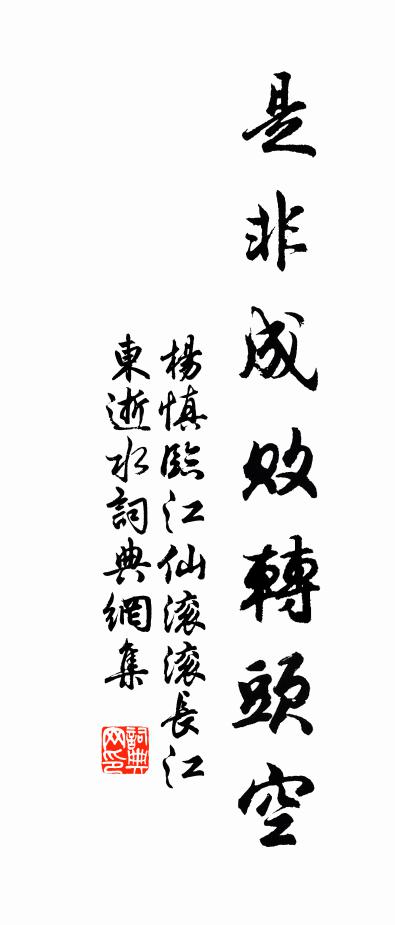 是非成敗轉頭空
楊慎臨江仙滚滚長江
東逝水詞典網集
詞典
网印